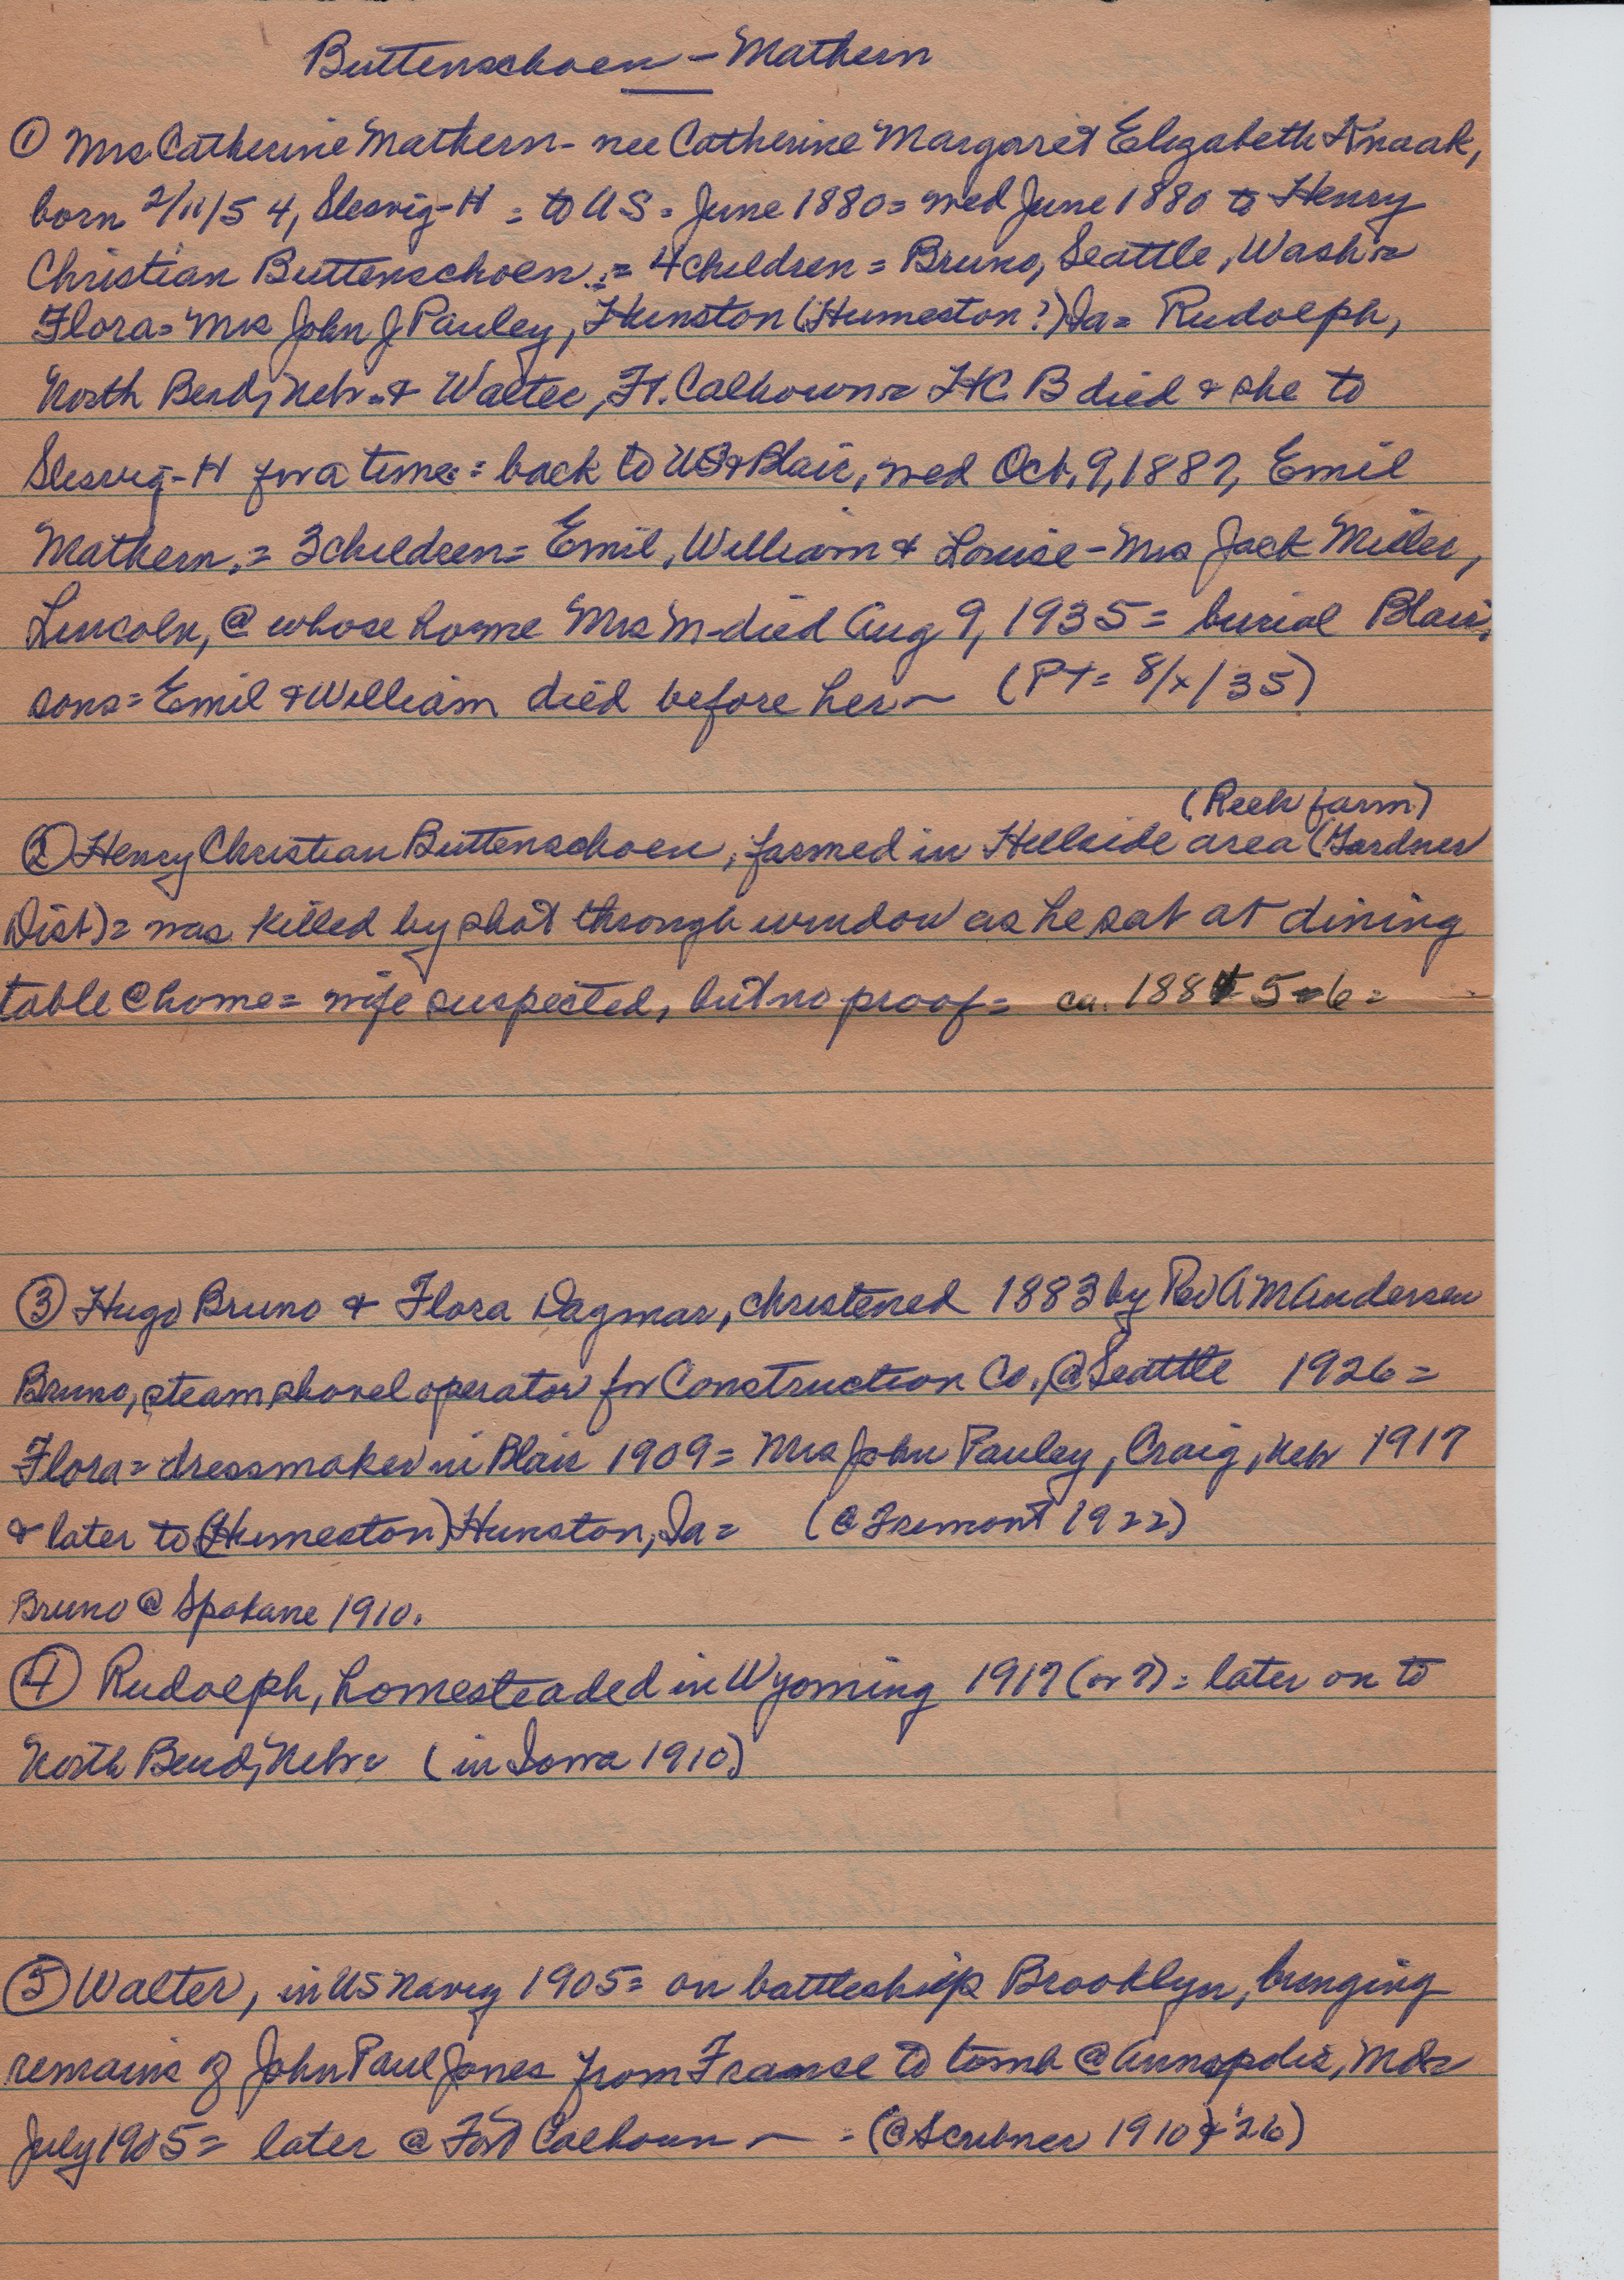 Buttenschoen - Mathern
① Mrs Catherine Mathern - nee Catherine Margaret Elizabeth Knaak,
born 2/11/54, Slesvig-H = to US = June 1880 = wed June 1880 to Henry
Christian Buttenschoen = 4 children = Bruno, Seattle, Wash =
Flora = Mrs John J Pauley, Hunston (Humeston?) Ia = Rudolph,
North Bend, Nebr. & Walter, Ft. Calhoun = HC B died & she to
Slesvig-H for a time = back to US & Blair, wed Oct. 9, 1887, Emil
Mathern. = 3 children = Emil, William & Louise - Mrs Jack Miller,
Lincoln, @ whose home Mrs M - died Aug 9, 1935 = burial Blair.
sons = Emil & William died before her ~ (PT = 8/x/35)
(Reeh farm)
② Henry Christian Buttenschoen, farmed in Hillside area (Gardner
Dist) = was killed by shot through window as he sat at dining
table @ home = wife suspected, but no proof = ca. 188 5-6 =
③ Hugo Bruno & Flora Dagmar, christened 1883 by Rev A M Andersen
Bruno, steam shovel operator for Construction Co., @ Seattle 1926 =
Flora = dressmaker in Blair 1909 = Mrs John Pauley, Craig, Neb 1917
& later to (Humeston) Hunston, Ia = (@ Fremont 1922)
Bruno @ Spokane 1910.
④ Rudolph, homesteaded in Wyoming 1917 (or ?) = later on to
North Bend, Nebr (in Iowa 1910)
⑤ Walter, in US Navy 1905 = on battleship Brooklyn, bringing
remains of John Paul Jones from France to tomb @ Annapolis, Md =
July 1905 = later @ Fort Calhoun ~ = (@ Scribner 1910 & '26)